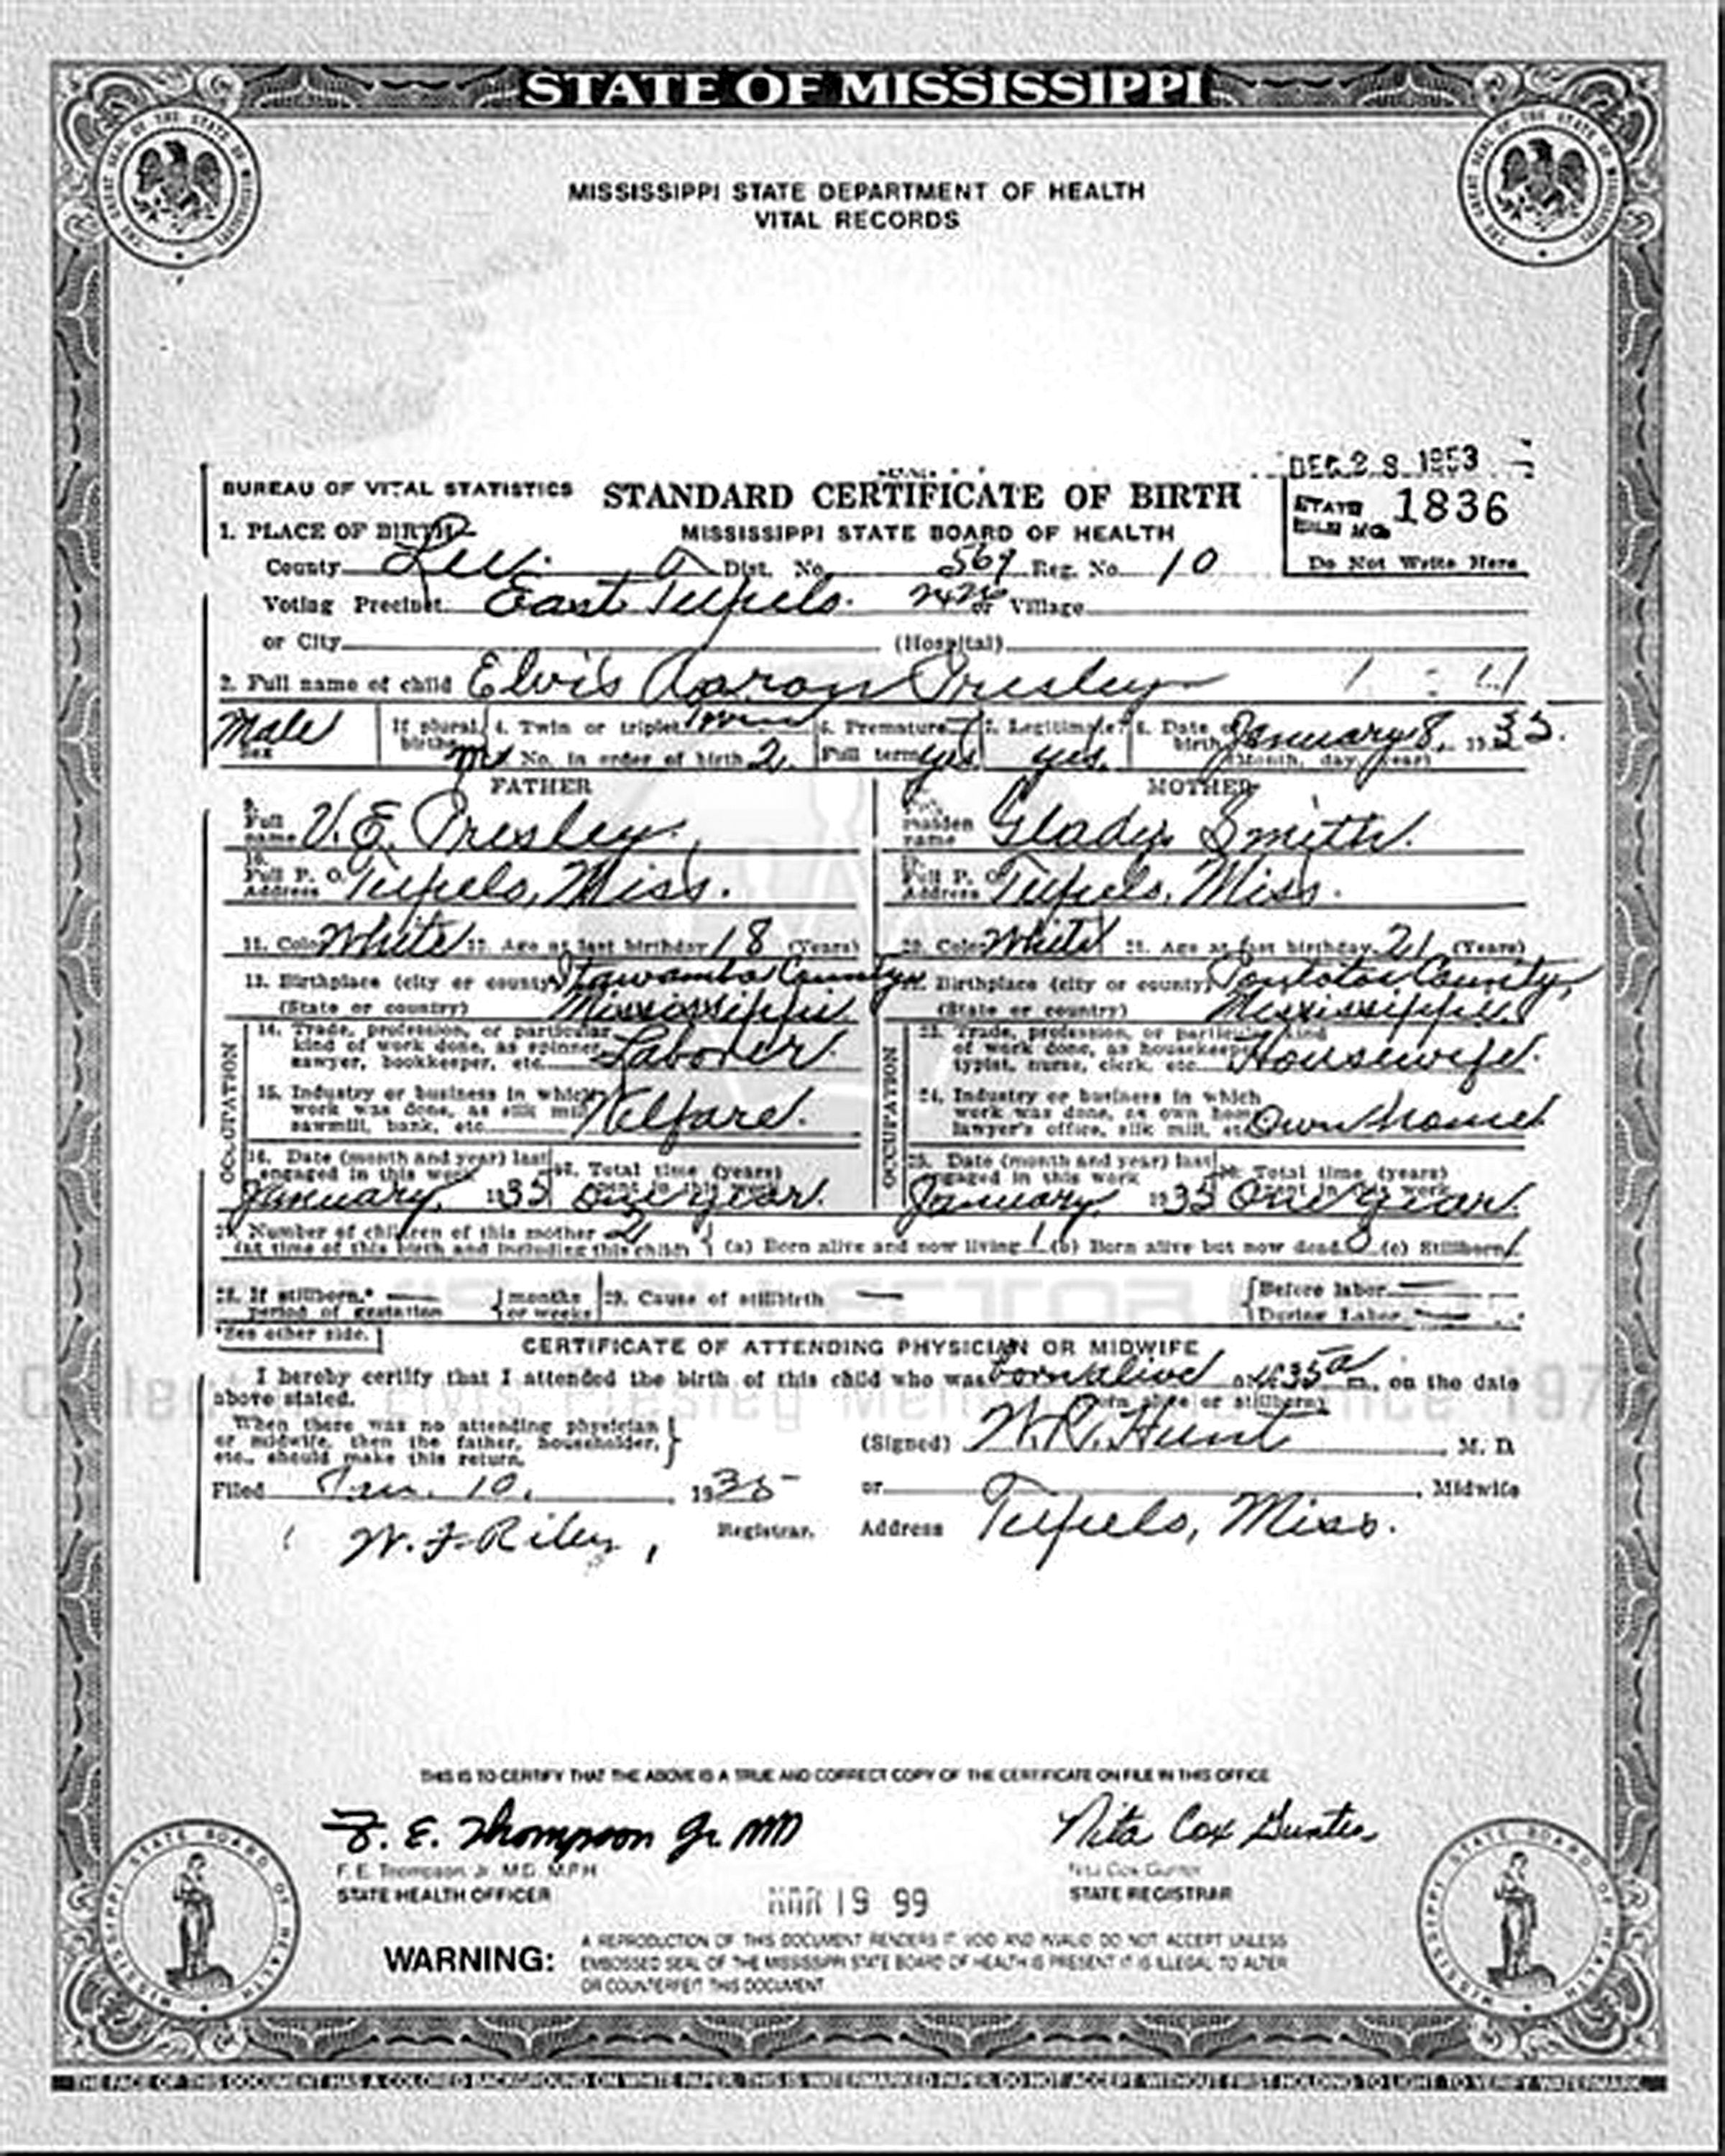 STATE OF MISSISSIPPI
MISSISSIPPI STATE DEPARTMENT OF HEALTH
VITAL RECORDS
DEC 28 1953
BUREAU OF VITAL STATISTICS STANDARD CERTIFICATE OF BIRTH
STATE FILE NO. 1836
1. PLACE OF BIRTH MISSISSIPPI STATE BOARD OF HEALTH
County Lee Dist. No. 569 Reg. No. 10
Do Not Write Here
Voting Precinct East Tupelo. or Village
or City (Hospital)
2. Full name of child Elvis Aaron Presley
Male Sex If plural births 4. Twin or triplet Twin 6. Premature 7. Legitimate? 8. Date of birth January 8, 1935.
No. in order of birth 2 Full term yes yes. (Month, day, year)
FATHER MOTHER
9. Full name V. E. Presley. maiden name Gladys Smith.
10. Full P. O. Address Tupelo, Miss. Full P. O. Address Tupelo, Miss.
11. Color White 12. Age at last birthday 18 (Years) 20. Color White 21. Age at last birthday 21 (Years)
13. Birthplace (city or county) Itawamba County Birthplace (city or county) Pontotoc County,
(State or country) Mississippi (State or country) Mississippi
OCCUPATION 14. Trade, profession, or particular kind of work done, as spinner, sawyer, bookkeeper, etc. Laborer. OCCUPATION 23. Trade, profession, or particular kind of work done, as housekeeper, typist, nurse, clerk, etc. Housewife.
15. Industry or business in which work was done, as silk mill, sawmill, bank, etc. Welfare. 24. Industry or business in which work was done, as own home, lawyer's office, silk mill, etc. Own home
16. Date (month and year) last engaged in this work January 1935 Total time (years) spent in this work one year. 25. Date (month and year) last engaged in this work January 1935 Total time (years) spent in this work One year.
Number of children of this mother 2
(at time of this birth and including this child) (a) Born alive and now living 1 (b) Born alive but now dead 0 (c) Stillborn 1
28. If stillborn,* period of gestation months or weeks 29. Cause of stillbirth Before labor
During Labor
*See other side.
CERTIFICATE OF ATTENDING PHYSICIAN OR MIDWIFE
I hereby certify that I attended the birth of this child who was born alive at 4:35 a m., on the date
above stated. (Born alive or stillborn)
When there was no attending physician
or midwife, then the father, householder,
etc., should make this return.
(Signed) W. R. Hunt M. D
Filed Jan. 10, 1935 or Midwife
W. F. Riley, Registrar. Address Tupelo, Miss.
THIS IS TO CERTIFY THAT THE ABOVE IS A TRUE AND CORRECT COPY OF THE CERTIFICATE ON FILE IN THIS OFFICE
F. E. Thompson Jr. MD Nita Cox Gunter
F. E. Thompson Jr. M.D. M.P.H. Nita Cox Gunter
STATE HEALTH OFFICER MAR 19 99 STATE REGISTRAR
WARNING: A REPRODUCTION OF THIS DOCUMENT RENDERS IT VOID AND INVALID DO NOT ACCEPT UNLESS
EMBOSSED SEAL OF THE MISSISSIPPI STATE BOARD OF HEALTH IS PRESENT IT IS ILLEGAL TO ALTER
OR COUNTERFEIT THIS DOCUMENT.
THE FACE OF THIS DOCUMENT HAS A COLORED BACKGROUND ON WHITE PAPER. THIS IS WATERMARKED PAPER. DO NOT ACCEPT WITHOUT FIRST HOLDING TO LIGHT TO VERIFY WATERMARK.
THE GREAT SEAL OF THE STATE OF MISSISSIPPI
THE GREAT SEAL OF THE STATE OF MISSISSIPPI
MISSISSIPPI STATE BOARD OF HEALTH
MISSISSIPPI STATE BOARD OF HEALTH